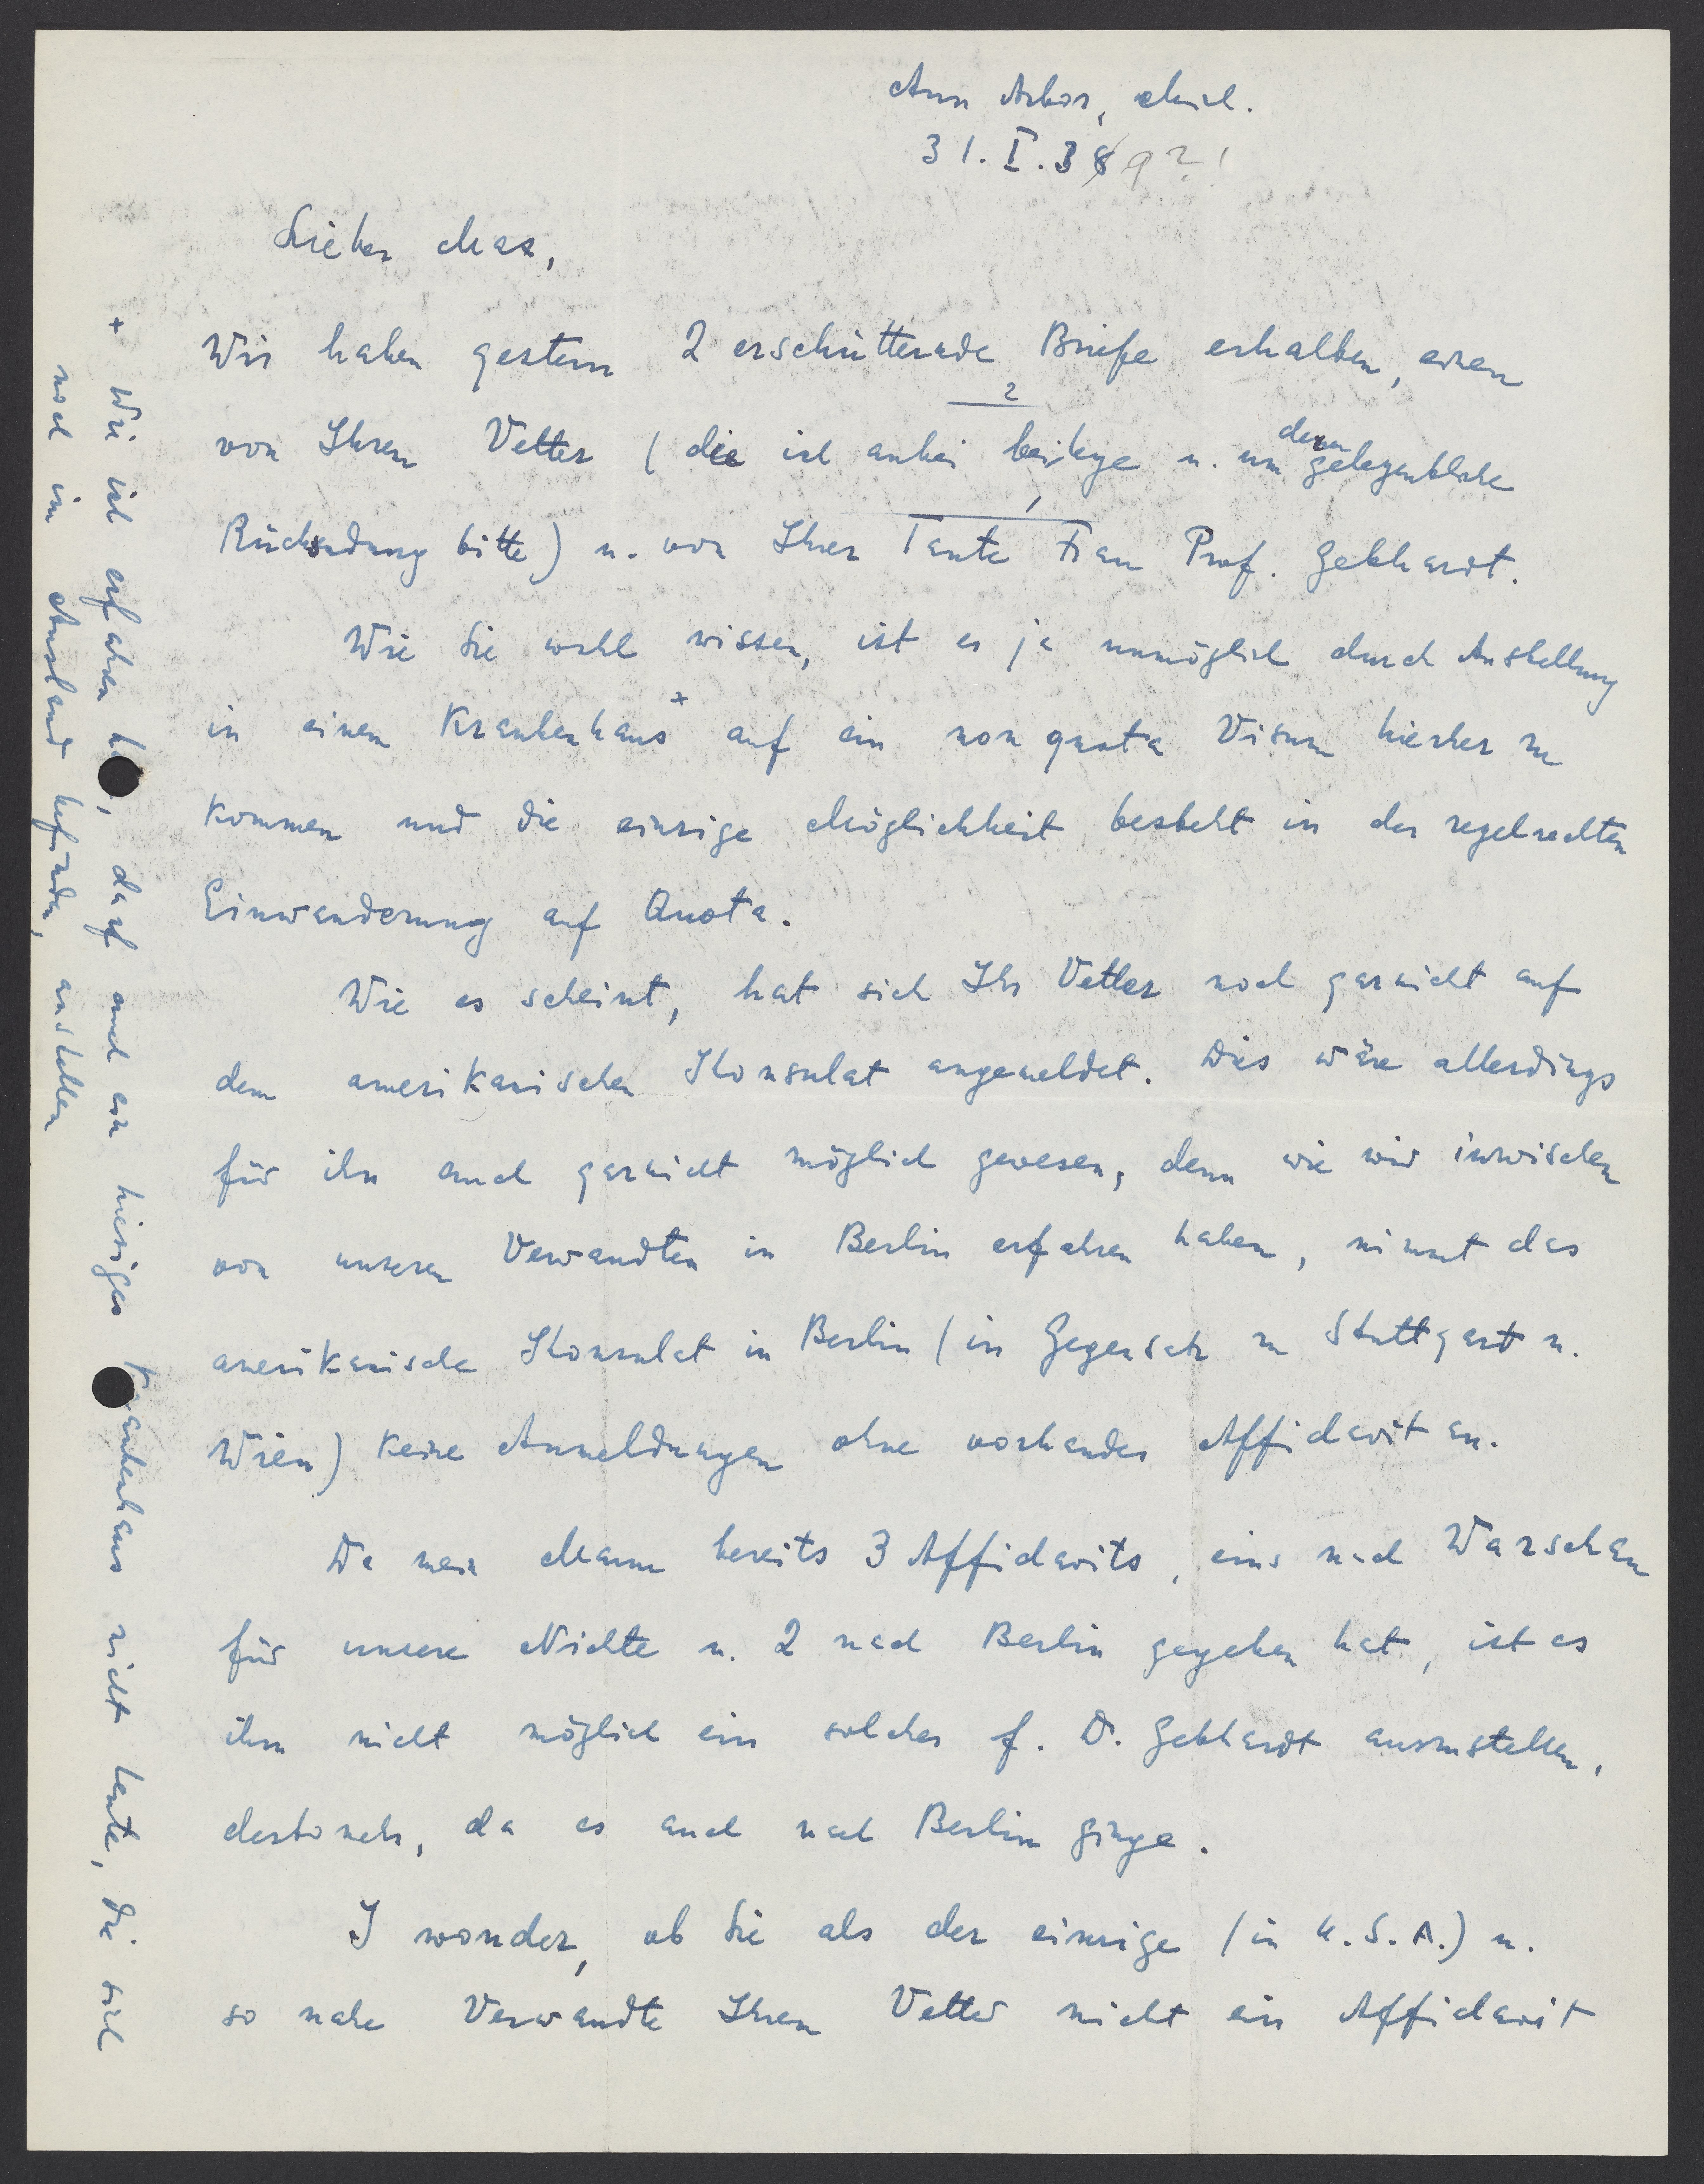 Ann Arbor, Mich.
31. I. 38 9?!
Lieber Max,
Wir haben gestern 2 erschütternde Briefe erhalten, einen
von Ihrem Vetter (die ich anbei beilege u. um deren gelegentliche
2
Rücksendung bitte) u. von Ihrer Tante Frau Prof. Gebhardt.
Wie Sie wohl wissen, ist es ja unmöglich durch Anstellung
in einem Krankenhaus + auf ein non quota Visum hierher zu
kommen und die einzige Möglichkeit besteht in der regelrechten
Einwanderung auf Quota.
Wie es scheint, hat sich Ihr Vetter noch garnicht auf
dem amerikanischen Konsulat angemeldet. Dies wäre allerdings
für ihn auch garnicht möglich gewesen, denn wie wir inzwischen
von unseren Verwandten in Berlin erfahren haben, nimmt das
amerikanische Konsulat in Berlin (in Gegensatz zu Stuttgart u.
Wien) keine Anmeldungen ohne vorhandes Affidavit an.
Da mein Mann bereits 3 Affidavits, eins nach Warschau
für unsere Nichte u. 2 nach Berlin gegeben hat, ist es
ihm nicht möglich ein solches f. D. Gebhardt auszustellen,
destomehr, da es auch nach Berlin ginge.
I wonder, ob Sie als der einzige (in U.S.A.) u.
so nahe Verwandte Ihrem Vetter nicht ein Affidavit
+ Wie ich erfahren h, darf auch ein hiesiges Krankenhaus nicht Leute, die sich
noch im Ausland befinden, anstellen